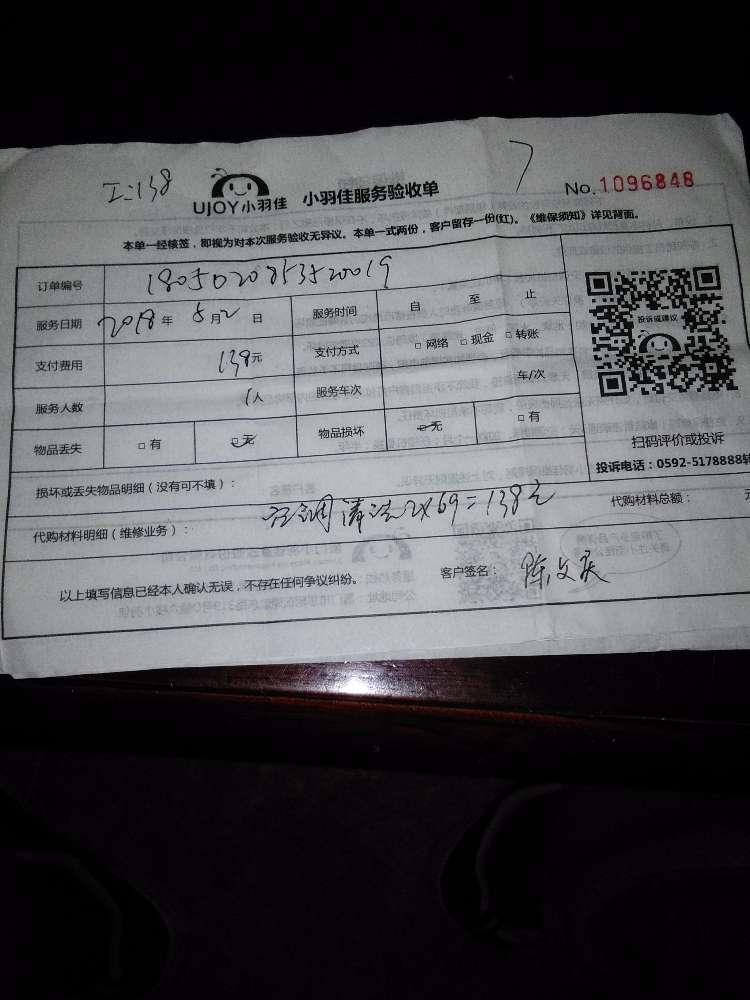 工:138
UJOY小羽佳 小羽佳服务验收单 No.1096848
本单一经核签，即视为对本次服务验收无异议。本单一式两份，客户留存一份(红)。《维保须知》详见背面。
订单编号 1805020853520019
服务日期 2018年5月2日 服务时间 自 至 止
支付费用 138元 支付方式 □网络 □现金 □转账
服务人数 1人 服务车次 车/次
物品丢失 □有 □无 物品损坏 □无 □有
投诉或建议
扫码评价或投诉
投诉电话：0592-5178888转
损坏或丢失物品明细（没有可不填）：
代购材料明细（维修业务）： 空调清洗2×69=138元 代购材料总额： 元
以上填写信息已经本人确认无误，不存在任何争议纠纷。 客户签名： 陈文庆